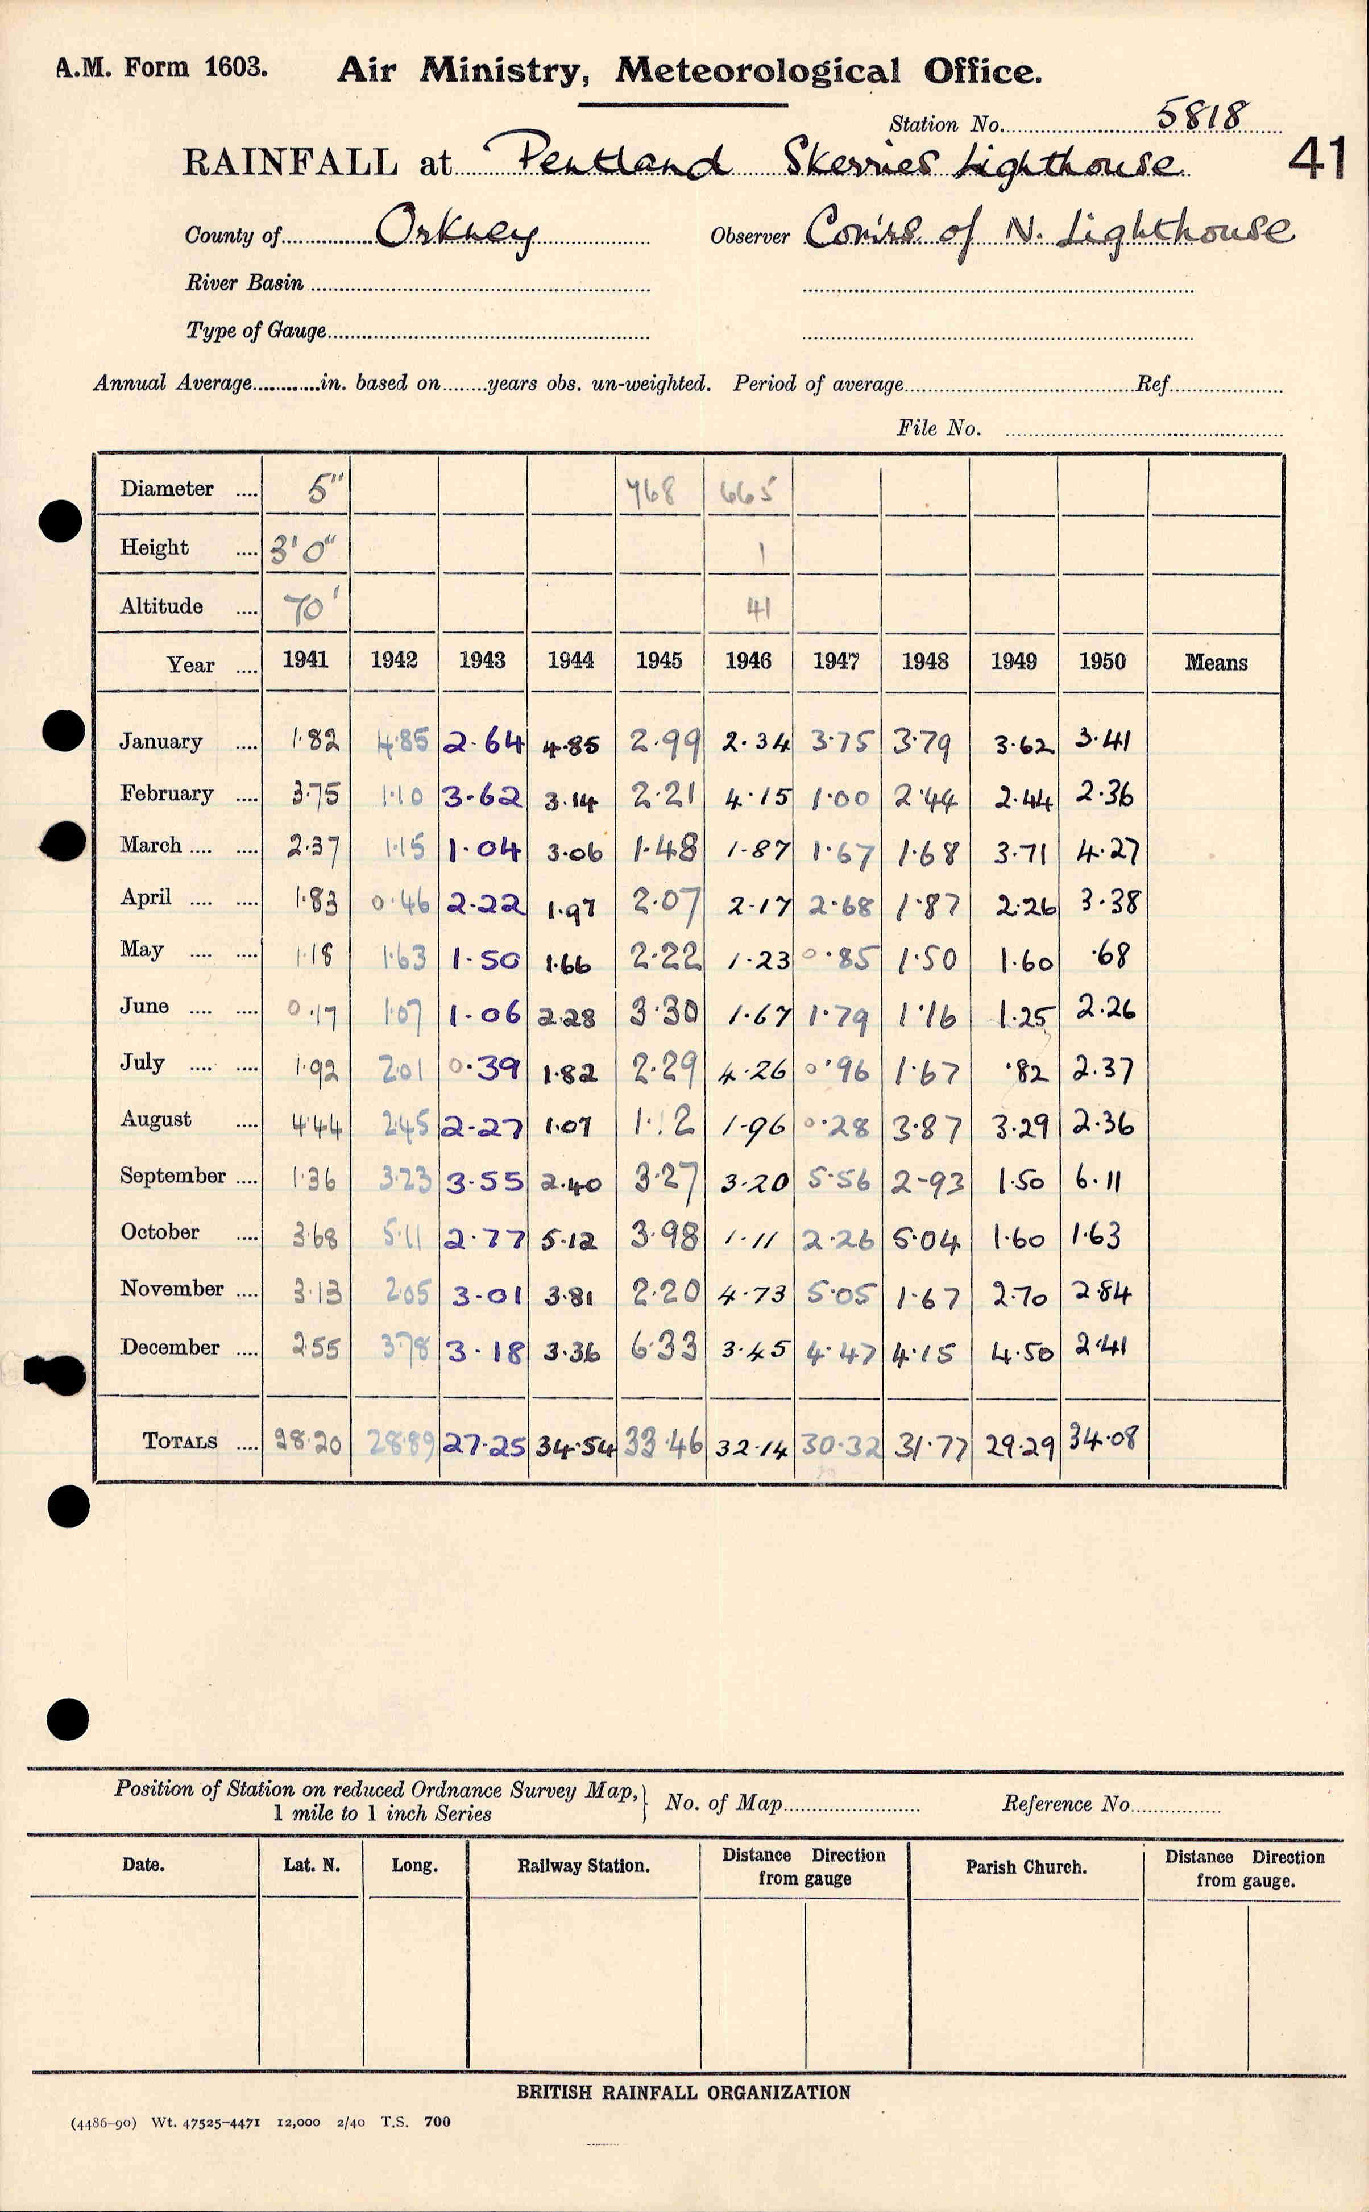 A.M. Form 1603. Air Ministry, Meteorological Office.
Station No. 5818
RAINFALL at Pentland Skerries Lighthouse 41
County of Orkney Observer Com'rs. of N. Lighthouse
River Basin
Type of Gauge
Annual Average in. based on years obs. un-weighted. Period of average Ref.
File No.
Diameter .... 5" 768 665
Height .... 3'0" 1
Altitude .... 70' 41
Year .... 1941 1942 1943 1944 1945 1946 1947 1948 1949 1950 Means
January .... 1.82 4.85 2.64 4.85 2.99 2.34 3.75 3.79 3.62 3.41
February .... 3.75 1.10 3.62 3.14 2.21 4.15 1.00 2.44 2.44 2.36
March .... .... 2.37 1.15 1.04 3.06 1.48 1.87 1.67 1.68 3.71 4.27
April .... .... 1.83 0.46 2.22 1.97 2.07 2.17 2.68 1.87 2.26 3.38
May .... .... 1.18 1.63 1.50 1.66 2.22 1.23 0.85 1.50 1.60 .68
June .... .... 0.17 1.07 1.06 2.28 3.30 1.67 1.79 1.16 1.25 2.26
July .... .... 1.92 2.01 0.39 1.82 2.29 4.26 0.96 1.67 .82 2.37
August .... 4.44 2.45 2.27 1.07 1.12 1.96 0.28 3.87 3.29 2.36
September .... 1.36 3.23 3.55 2.40 3.27 3.20 5.56 2.93 1.50 6.11
October .... 3.68 5.11 2.77 5.12 3.98 1.11 2.26 5.04 1.60 1.63
November .... 3.13 2.05 3.01 3.81 2.20 4.73 5.05 1.67 2.70 2.84
December .... 2.55 3.78 3.18 3.36 6.33 3.45 4.47 4.15 4.50 2.41
TOTALS .... 28.20 28.89 27.25 34.54 33.46 32.14 30.32 31.77 29.29 34.08
Position of Station on reduced Ordnance Survey Map, 1 mile to 1 inch Series } No. of Map Reference No.
Date. Lat. N. Long. Railway Station. Distance Direction from gauge Parish Church. Distance Direction from gauge.
BRITISH RAINFALL ORGANIZATION
(4486-90) Wt. 47525-4471 12,000 2/40 T.S. 700